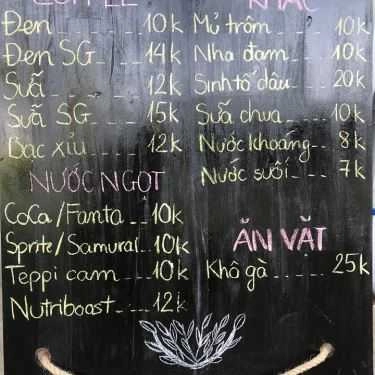 COFFEE
Đen 10k
Đen SG 14k
Sữa 12k
Sữa SG 15k
Bạc xỉu 12k
NƯỚC NGỌT
CoCa/Fanta 10k
Sprite/Samurai 10k
Teppi cam 10k
Nutriboost 12k
KHÁC
Mủ trôm 10k
Nha đam 10k
Sinh tố dâu 20k
Sữa chua 10k
Nước khoáng 8k
Nước suối 7k
ĂN VẶT
Khô gà 25k